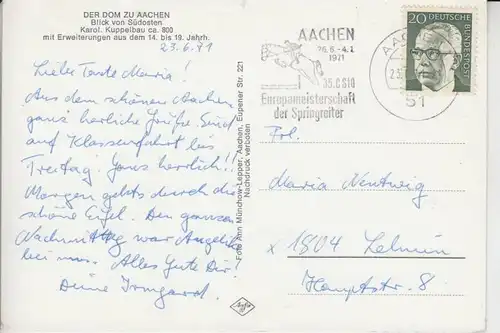 DER DOM ZU AACHEN
Blick von Südosten
Karol. Kuppelbau ca. 800
mit Erweiterungen aus dem 14. bis 19. Jahrh.
23.6.71
Liebe Tante Maria!
Aus dem schönen Aachen
ganz herzliche Grüße. Sind
auf Klassenfahrt bis
Freitag. Ganz herrlich!!
Morgen gehts durch die
schöne Eifel. Den ganzen
Nachmittag war Angelika
bei mir. Alles Gute Dir!
Deine Irmgard.
Foto Ann Münchow-Lepper, Aachen, Eupener Str. 221
Nachdruck verboten
Agfa
AACHEN
26.6.-4.7.
1971
35. CSIO
Europameisterschaft
der Springreiter
AAC
51
20
DEUTSCHE BUNDESPOST
Frl.
Maria Nentwig
x 1804 Lehnin
Hauptstr. 8